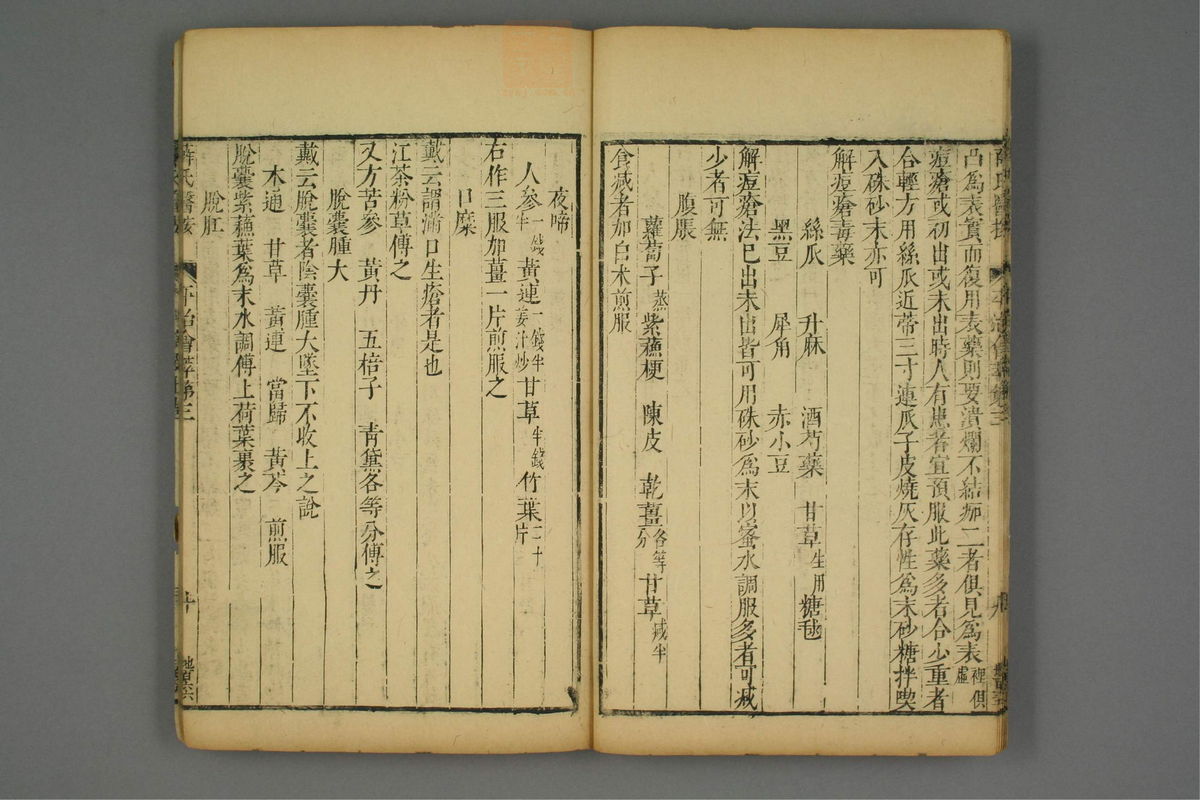 凸爲表實而復用表藥則要潰爛不結痂二者俱見爲表裡俱虛
痘瘡或初出或未出時人有患者宜預服此藥多者令少重者
令輕方用絲瓜近蒂三寸連瓜子皮燒灰存性爲末砂糖拌喫
入硃砂末亦可
解痘瘡毒藥
絲瓜 升麻 酒芍藥 甘草生用 糖毬
黑豆 犀角 赤小豆
解痘瘡法已出未出皆可用硃砂爲末以蜜水調服多者可減
少者可無
腹脹
蘿蔔子蒸 紫蘓梗 陳皮 乾薑各等分 甘草減半
食減者加白朮煎服
夜啼
人參一錢半 黃連一錢半姜汁炒 甘草半錢 竹葉二十片
右作三服加薑一片煎服之
口糜
戴云謂滿口生瘡者是也
江茶粉草傅之
又方苦參 黃丹 五棓子 青黛各等分傅之
脫囊腫大
戴云脫囊者陰囊腫大墜下不收上之說
木通 甘草 黃連 當歸 黃芩 煎服
脫囊紫蘓葉爲末水調傅上荷葉裹之
脫肛
薛氏醫案